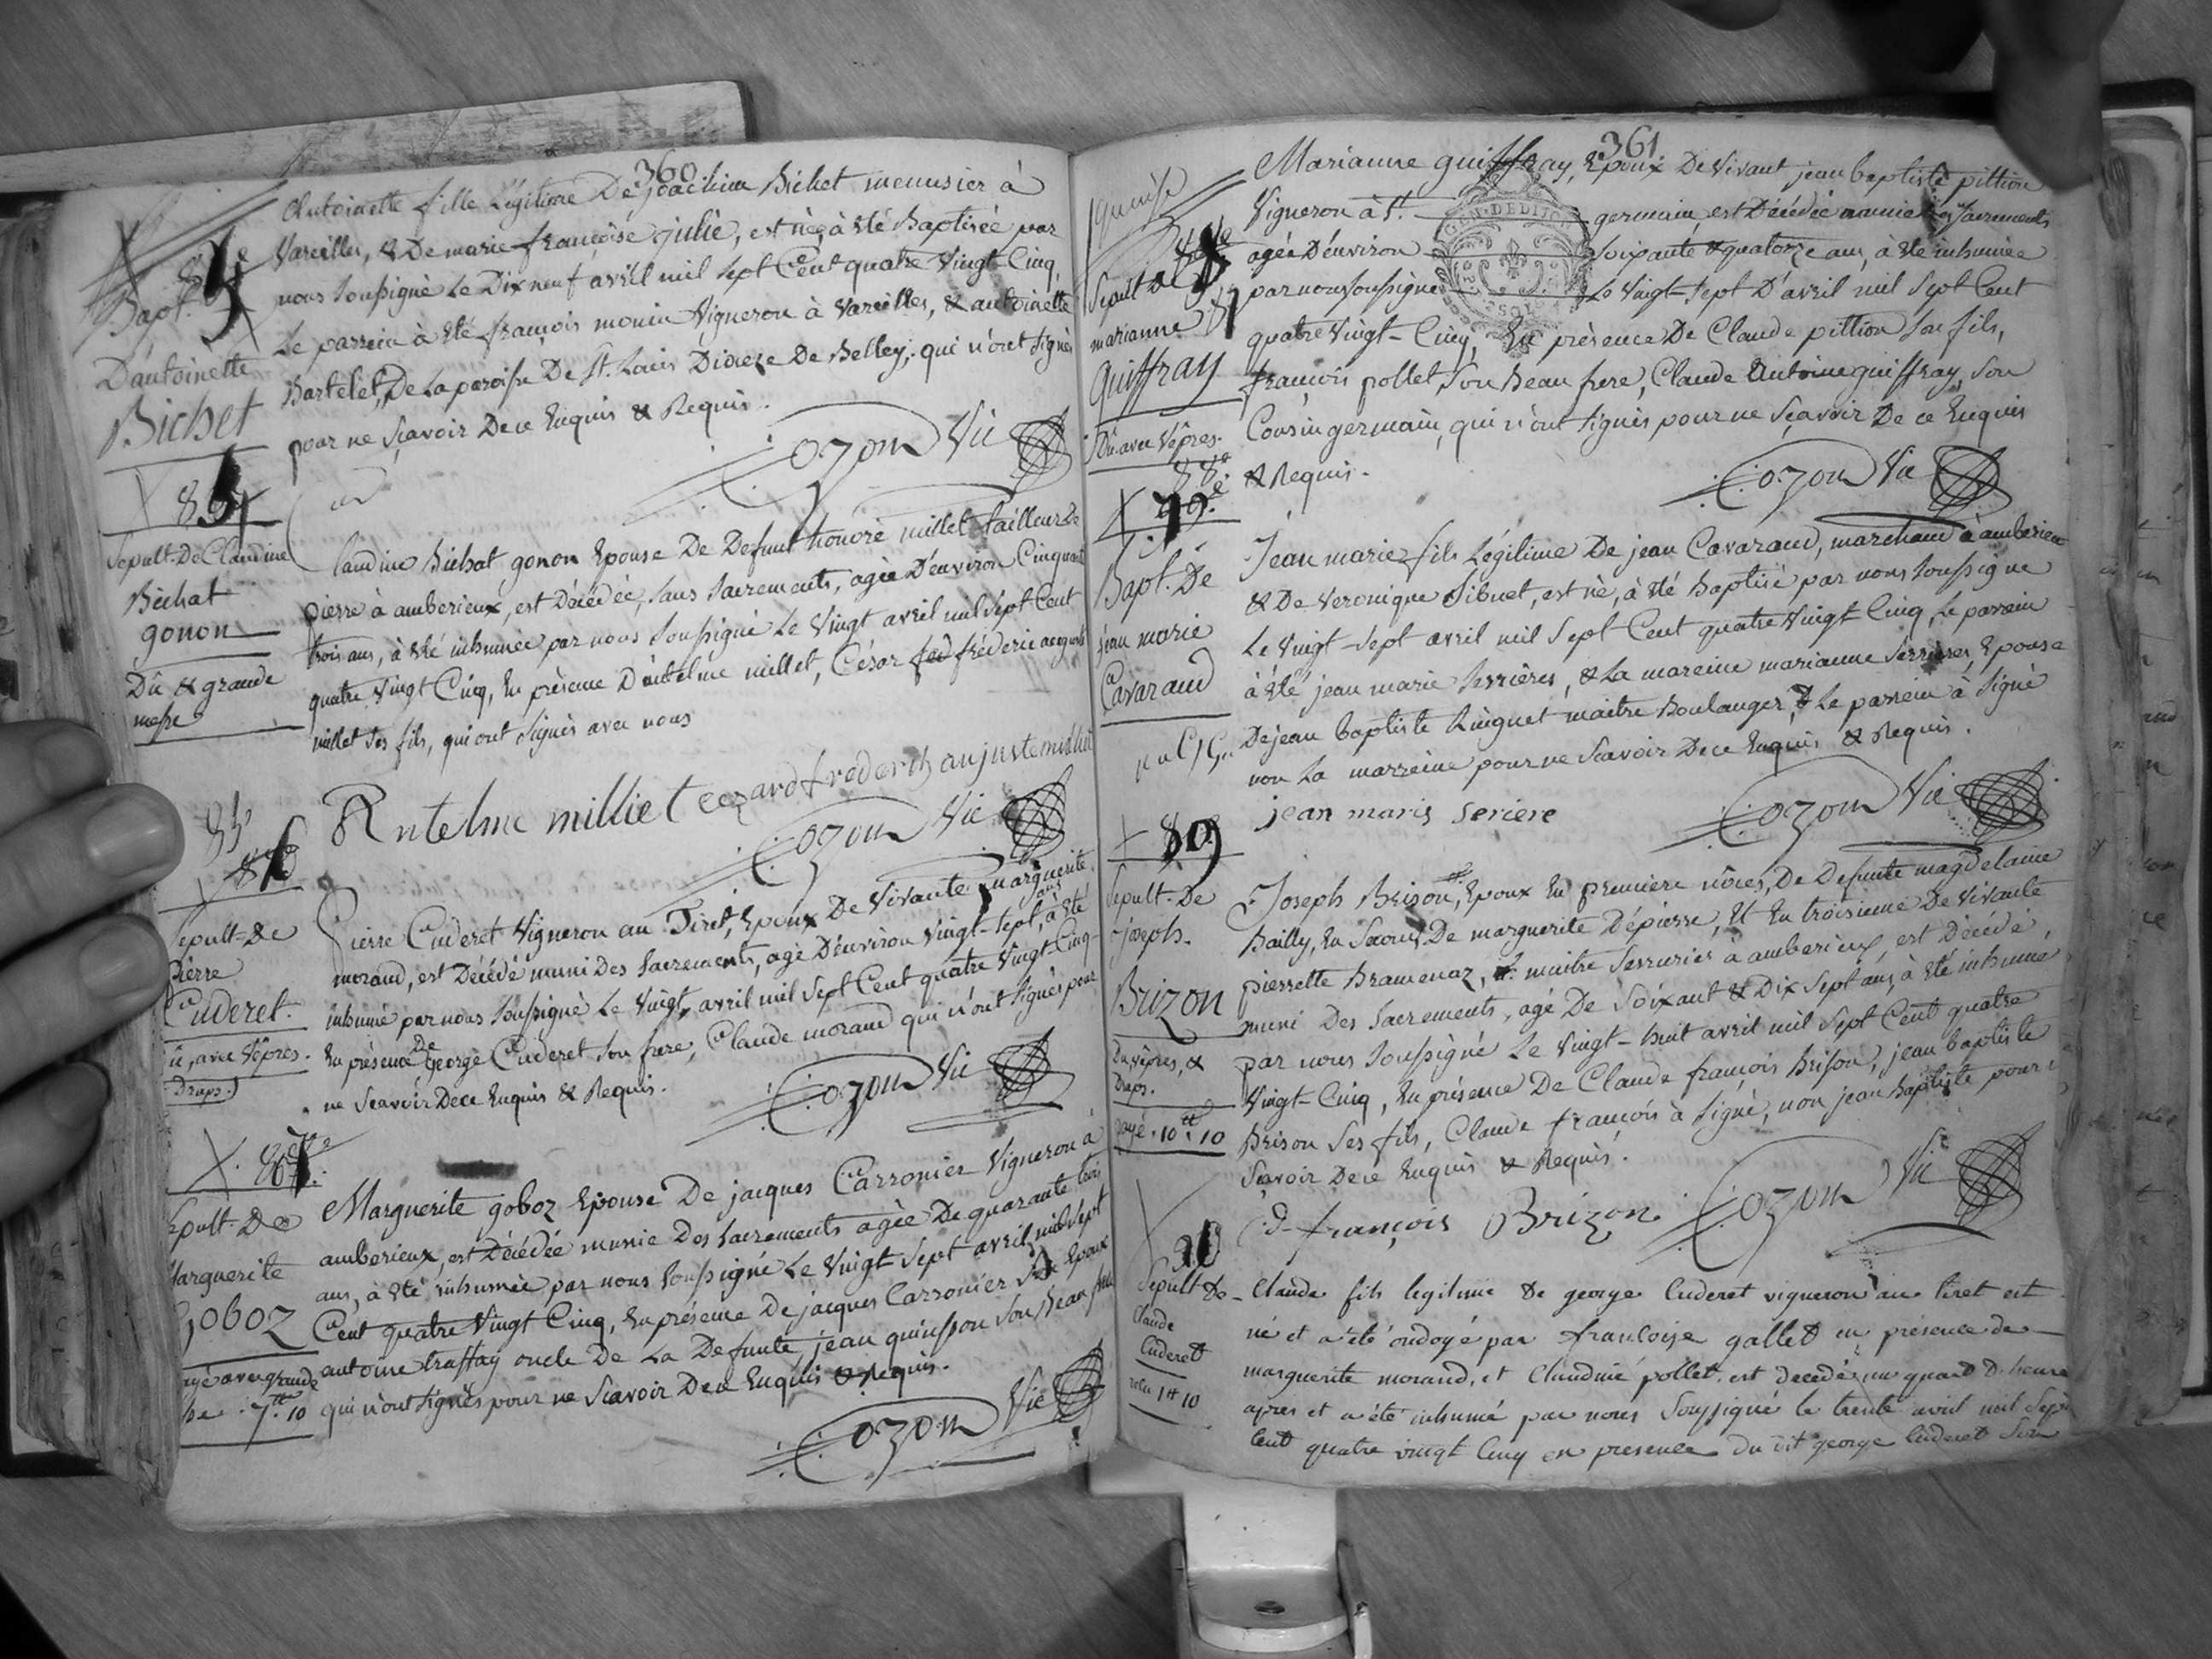 360
Bapt.
D'antoinette
Bichet
Antoinette fille Légitime De joachim Bichet menusier à
Vareilles, & De marie françoise julie, est née, à été Baptisée par
nous soussigné Le Dix neuf avril mil sept Cent quatre Vingt Cinq,
Le parrein à été françois monin Vigneron à Vareilles, & antoinette
Bartelet, De La paroisse De St. Louis Diocèse De Belley, qui n'ont signés
pour ne sçavoir De ce Enquis & Requis.
Cozon Vic
Sepult. De Claudine
Bichat
gonon
Dû & grande
messe
Claudine Bichat gonon Epouse De Defunt honoré millet tailleur De
pierre à amberieux, est Décédée, sans sacrements, agée D'environ Cinquante
trois ans, à été inhumée par nous soussigné Le Vingt avril mil sept Cent
quatre Vingt Cinq, En présence D'antelme millet, César fréderic
millet ses fils, qui ont signés avec nous
Antelme milliet
Cozon Vic
85e
Sepult. De
Pierre
Cuderet.
avec Vêpres.
Draps.
Pierre Cuderet Vigneron au Tiret, Epoux De Vivante marguerite
morand, est Décédé muni Des sacrements, agé D'environ vingt-sept ans, à été
inhumé par nous soussigné Le Vingt, avril mil sept Cent quatre Vingt-Cinq
En présence De George Cuderet son frere, Claude morand qui n'ont signés pour
ne sçavoir De ce Enquis & Requis.
Cozon Vic
Sepult. De
Marguerite
Goboz
payé avec grande
messe. 7tt. 10
Marguerite goboz Epouse De jacques Carronier Vigneron à
amberieux, est Décédée munie Des sacrements agée De quarante trois
ans, à été inhumée par nous soussigné Le Vingt sept avril mil sept
Cent quatre Vingt Cinq, En présence De jacques Carronier son Epoux
antoine traffay oncle De La Defunte, jean quinsson son Beau frere
qui n'ont signés pour ne sçavoir De ce Enquis & Requis.
Cozon Vic
361
Sepult De
marianne
Guiffray
Dû avec Vêpres.
Marianne guiffray, Epouse De Vivant jean baptiste pittion
Vigneron à St. germain, est Décédée munie Des sacrements
agée D'environ soixante & quatorze ans, à été inhumée
par nous soussigné Le Vingt-sept D'avril mil sept Cent
quatre Vingt-Cinq, En présence De Claude pittion son fils,
françois pollet, son Beau frere, Claude Antoine guiffray, son
Cousin germain, qui n'ont signés pour ne sçavoir De ce Enquis
& Requis.
Cozon Vic
88e
Bapt. De
jean marie
Cavaraud
Jean marie fils Légitime De jean Cavaraud, marchand à amberieux
& De Veronique Sibuet, est né, à été Baptisé par nous soussigné
Le Vingt-sept avril mil sept Cent quatre Vingt Cinq, Le parrein
à été jean marie serrières, & La mareine marianne serrieres Epouse
De jean baptiste Ringuet maitre Boulanger, Le parrein à signé
non La marreine pour ne sçavoir De ce Enquis & Requis.
jean maris seriere
Cozon Vic
Sepult. De
joseph.
Brizon
Du, Vêpres, &
Draps.
payé. 10tt. 10
Joseph Brison, Epoux En premiere nôces, De Defunte magdelaine
Bailly, En secous De marguerite Dépierre, Et En troisieme De Vivante
pierrette Bramenaz, maitre serrurier à amberieux, est Décédé,
muni Des sacrements, agé De soixant & Dix sept ans, à été inhumé
par nous soussigné Le Vingt-huit avril mil sept Cent quatre
Vingt-Cinq, En présence De Claude françois Brison, jean baptiste
Brison ses fils, Claude françois à signé, non jean baptiste pour
sçavoir De ce Enquis & Requis.
françois Brizon
Cozon Vic
Sepult De
Claude
Cuderet
reçu 1tt 10
Claude fils legitime De george Cuderet vigneron au tiret est
né et a été ondoyé par françoise gallet en présence de
marguerite morand, et Claudine pollet. est decedé, un quard D'heure
apres et a été inhumé par nous soussigné le trente avril mil sept
Cent quatre vingt Cinq en presence Du dit george Cuderet son